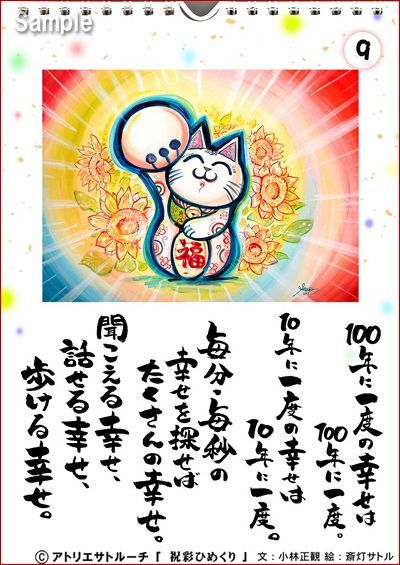 Sample
9
福
100年に一度の幸せは
100年に一度。
10年に一度の幸せは
10年に一度。
毎分・毎秒の
幸せを探せば
たくさんの幸せ。
聞こえる幸せ、
話せる幸せ、
歩ける幸せ。
Ⓒアトリエサトルーチ『 祝彩ひめくり 』 文：小林正観 絵：斎灯サトル